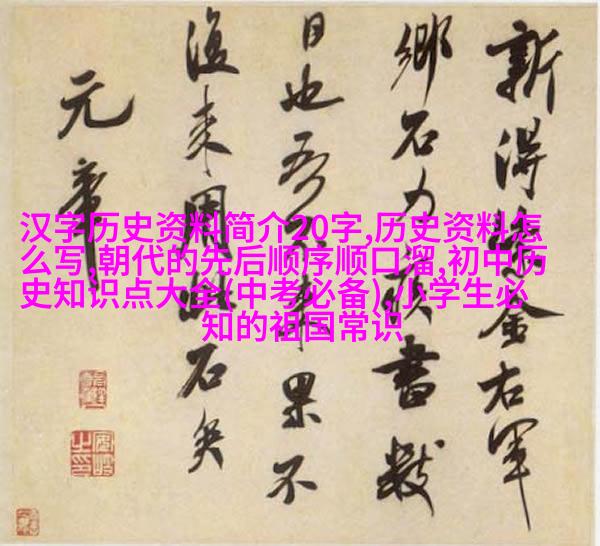 汉字历史资料简介20字,历史资料怎
么写,朝代的先后顺序顺口溜,初中历
史知识点大全(中考必备),小学生必
知的祖国常识
新得紫金右軍
鄉石力疾書數
日也吾不來果不
復來用此石矣
元章